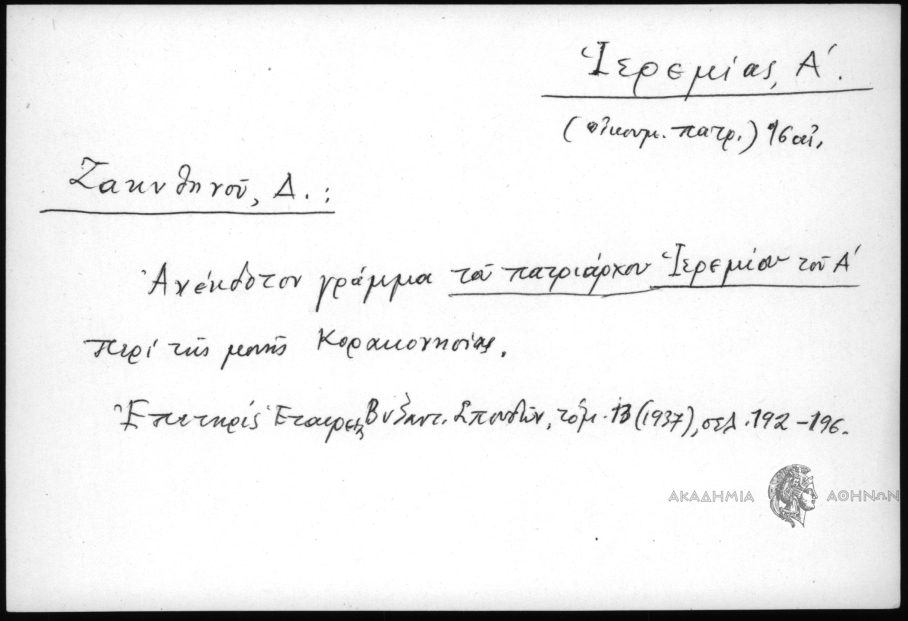 Ἱερεμίας, Α´.
(οἰκουμ. πατρ.) 16 αἰ.
Ζακυθηνοῦ, Δ. :
Ἀνέκδοτον γράμμα τοῦ πατριάρχου Ἱερεμίου τοῦ Α´
περί τῆς μονῆς Κορακονησίας.
Ἐπετηρίς Ἑταιρείας Βυζαντ. Σπουδῶν, τόμ. 13 (1937), σελ. 192-196.
ΑΚΑΔΗΜΙΑ ΑΘΗΝΩΝ